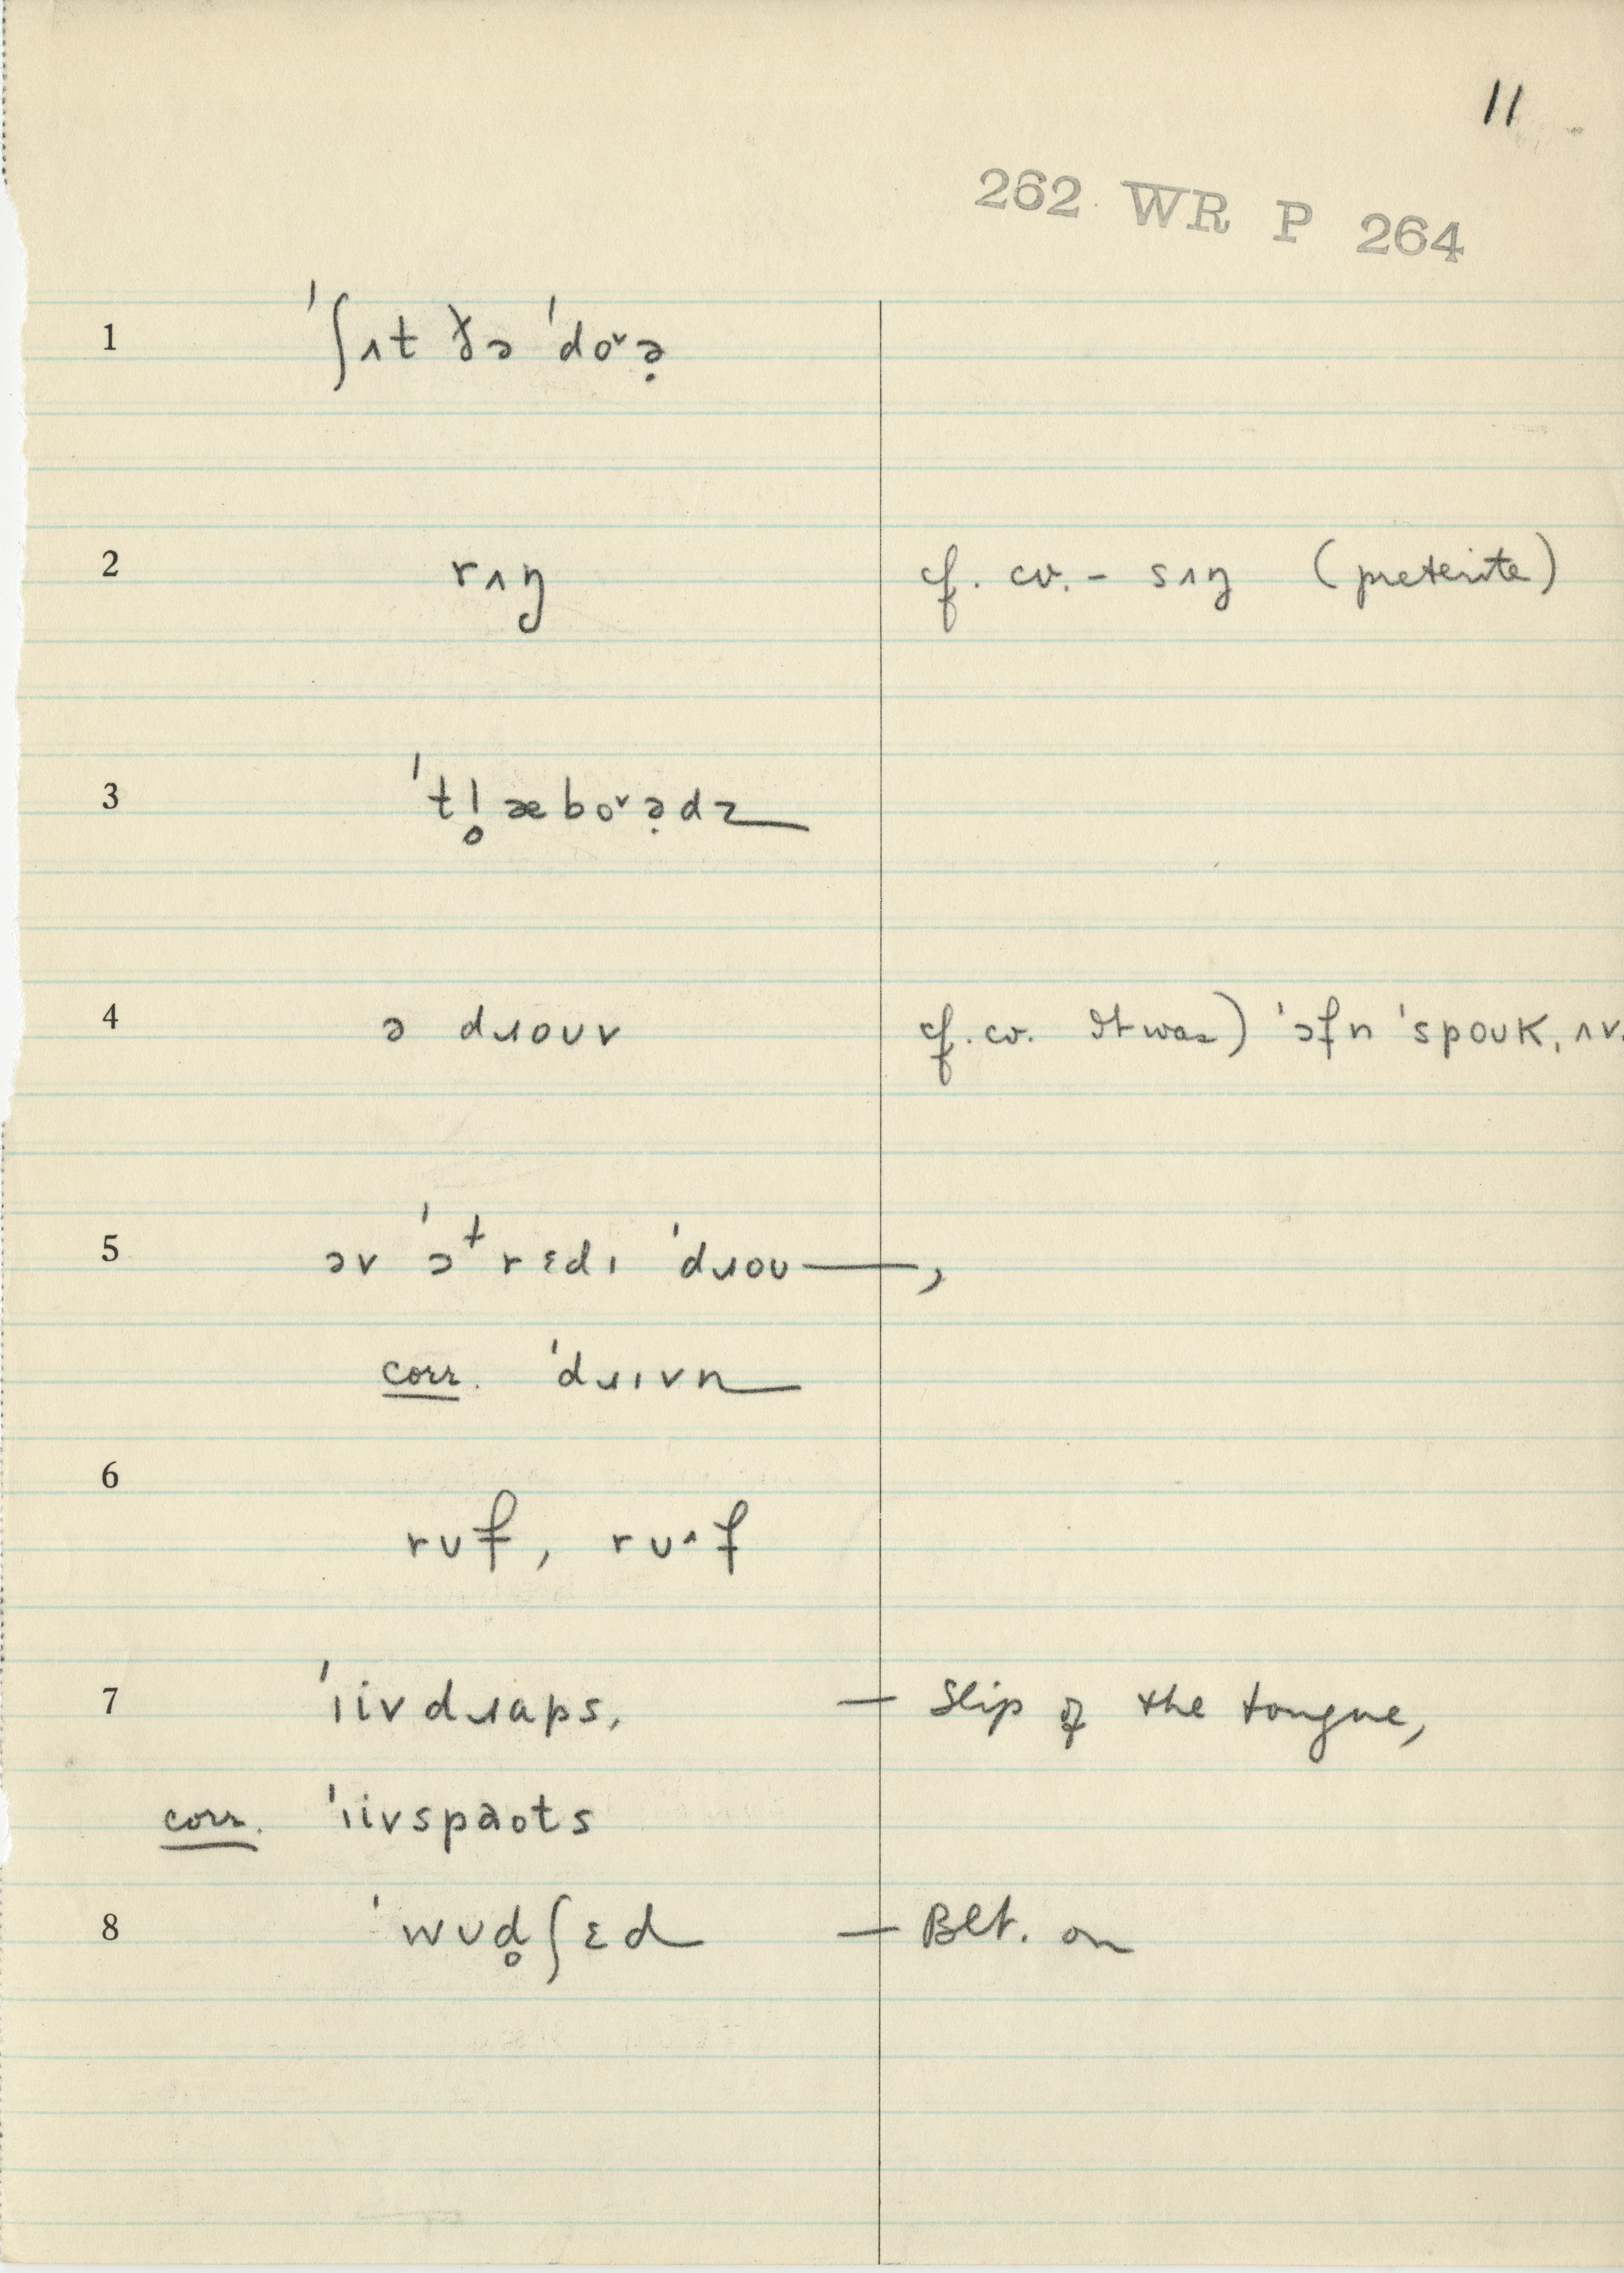 11
262 WR P 264
1 ˈʃʌt ðə ˈdo˅ə̣
2 rʌŋ cf. cv. – sʌŋ (preterite)
3 ˈtl̥æbo˅ə̣dz
4 ə dɹoʊv cf. cv. It was) ˈɔfn ˈspoʊk, ʌv.
5 əv ˈɔᵗrɛdɪ ˈdɹoʊ—,
corr. ˈdɹɪvn
6
rʊf, rʊ˄f
7 ˈɪivdɹaps, — Slip of the tongue,
corr. ˈɪivspaots
8 ˈwʊd̥ʃɛd — Blt. on